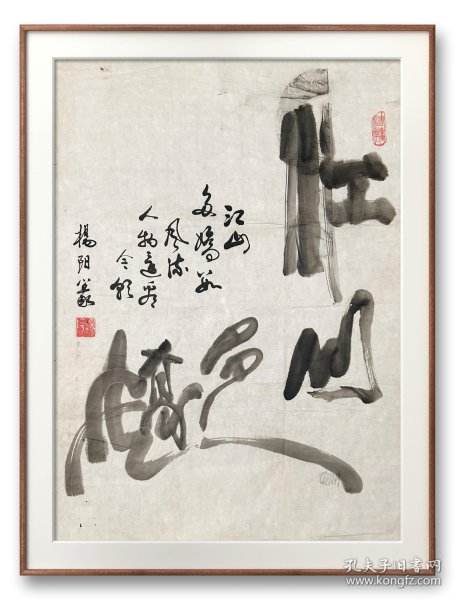 江
山
多嬌
江山
多嬌数
風流
人物還看
今朝
楊阳篆
孔夫子旧书网
www.kongfz.com